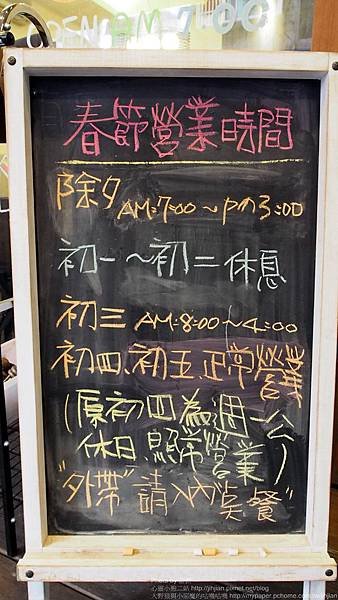 OPEN AM 7:00
春節營業時間
除夕 AM:7:00~pm3:00
初一~初二休息
初三 AM:8:00~4:00
初四、初五、正常營業
(原初四為週一公
休日,照常營業)
"外帶"請入內點餐"
心靈小憩二站 http://jihjian.pixnet.net/blog